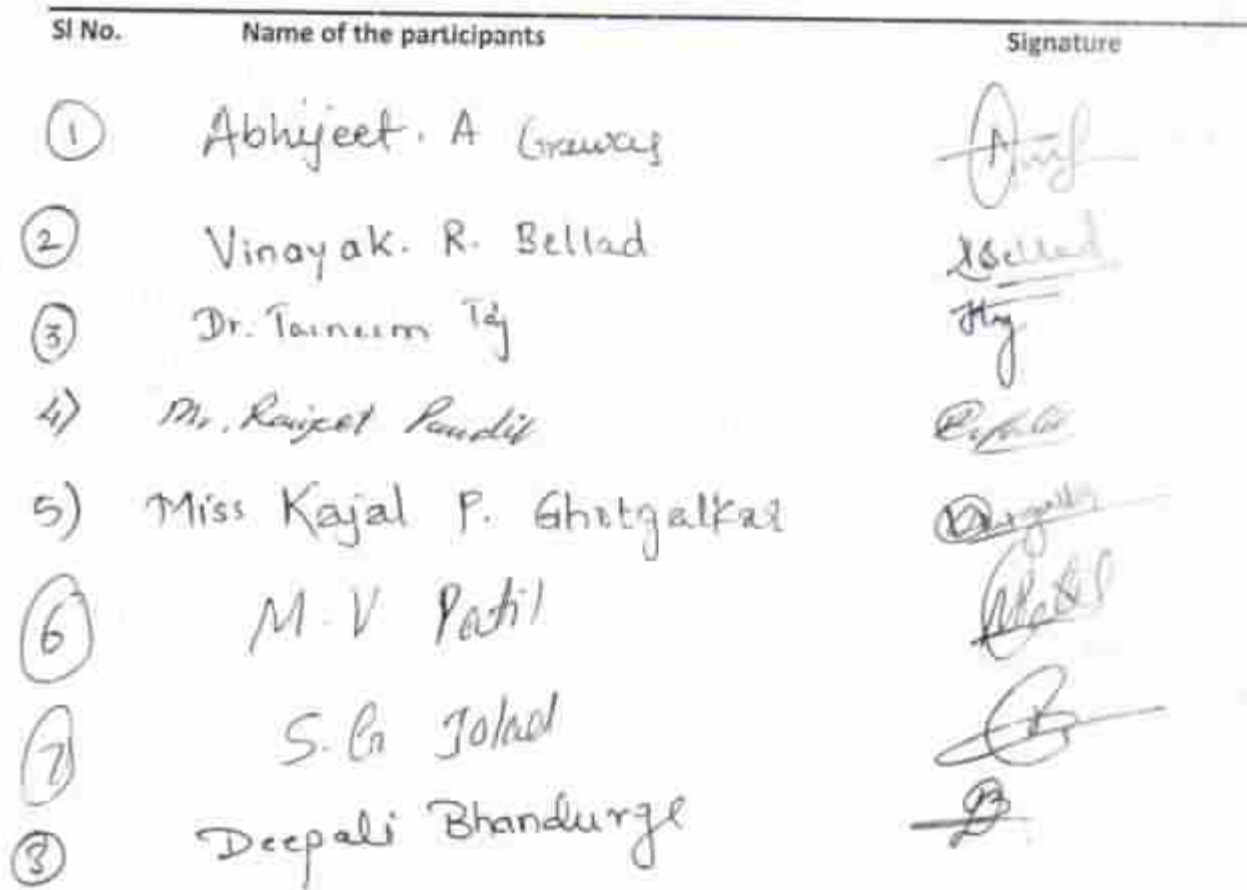 Sl No. Name of the participants Signature
1 Abhijeet. A
2 Vinayak. R. Bellad Bellad
3 Dr. Tasneem Taj
4) Mr. Ranjeet Pandit
5) Miss Kajal P. Ghotgalkar
6 M. V Patil MPatil
7 S. G Jolad
8 Deepali Bhandurge